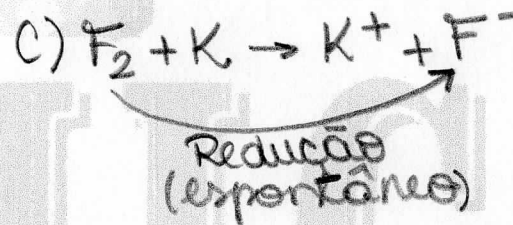 C) F₂ + K → K⁺ + F⁻
Redução
(espontâneo)